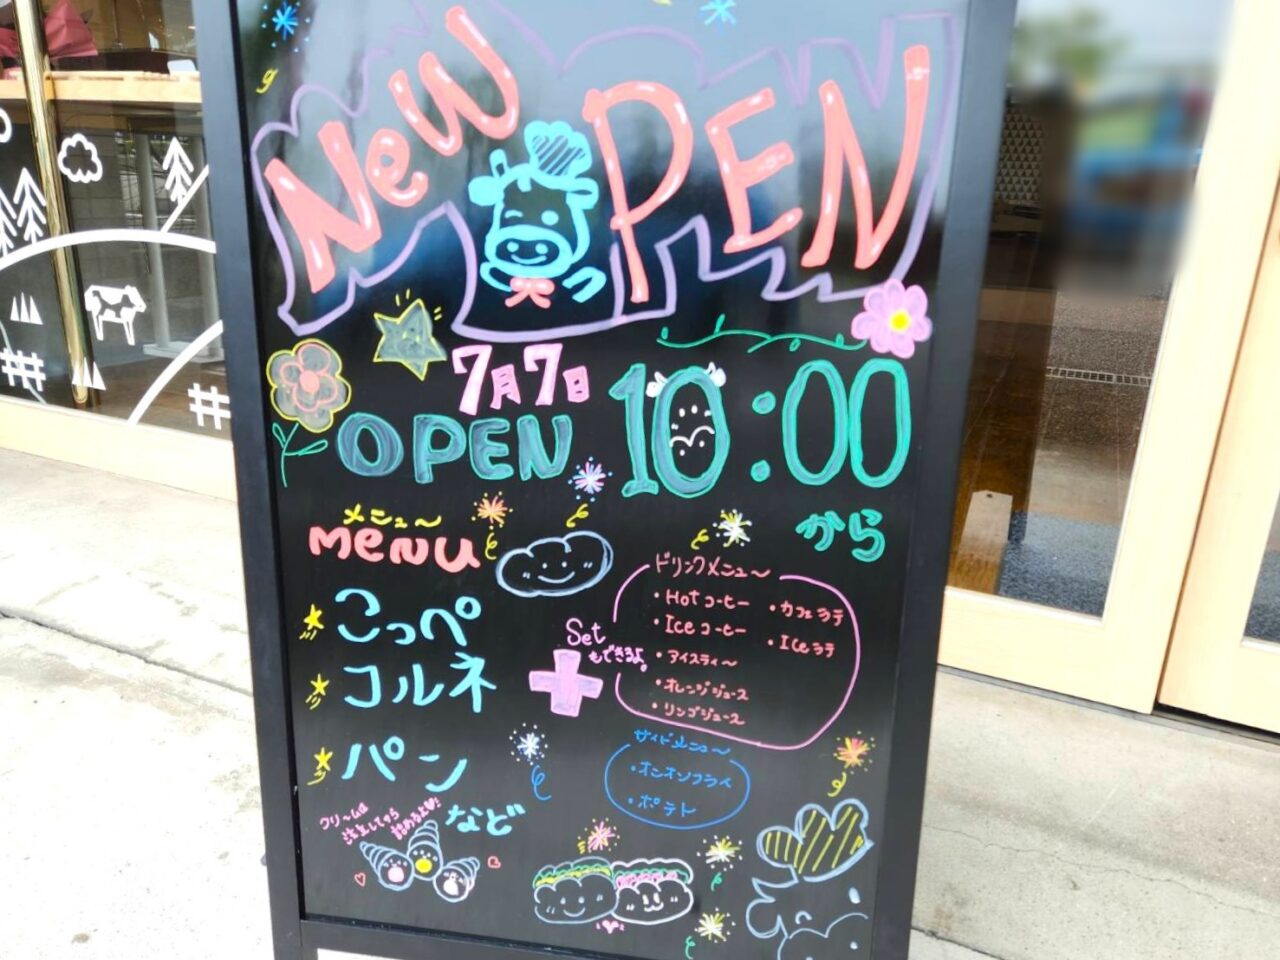 New OPEN
7月7日
OPEN 10:00
から
メニュ〜
MeNU
こっぺ
コルネ
パン
など
クリームは
注文してから
詰めるよ♡!
Set
もできるよ。
ドリンクメニュ〜
・Hot コーヒー
・カフェラテ
・Ice コーヒー
・Ice ラテ
・アイスティ〜
・オレンジジュース
・リンゴジュース
サイドメニュ〜
・オニオンフライ
・ポテト